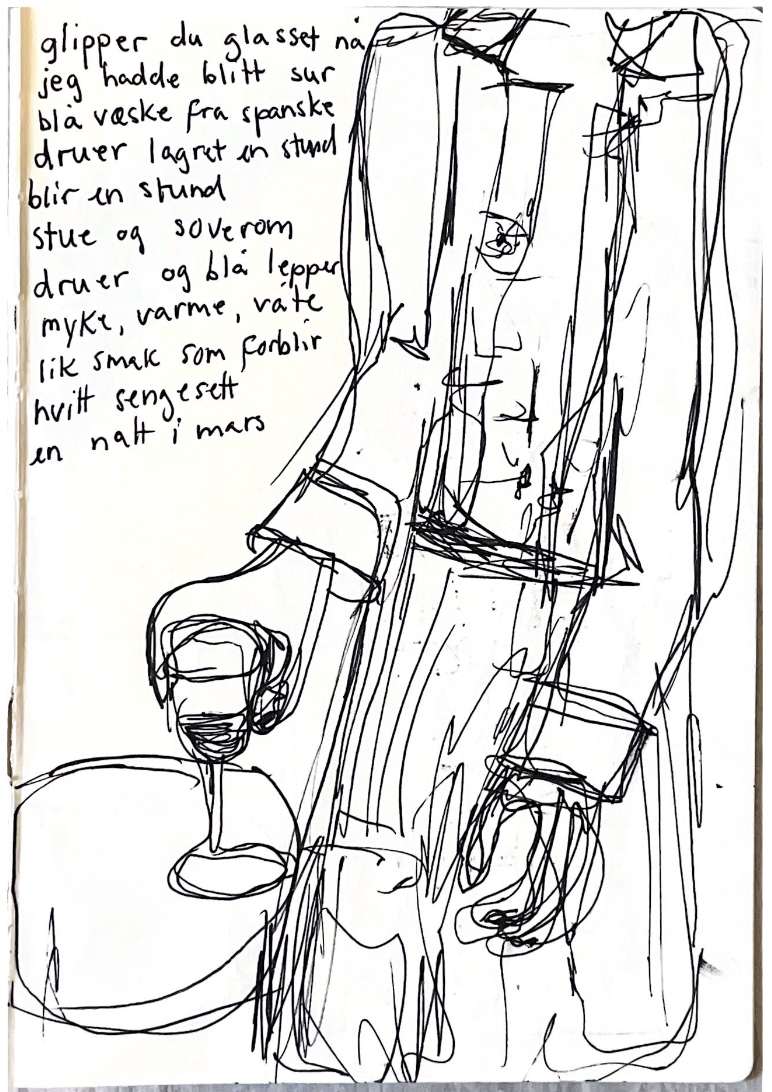 glipper du glasset nå
jeg hadde blitt sur
blå væske fra spanske
druer lagret en stund
blir en stund
stue og soverom
druer og blå lepper
myke, varme, våte
lik smak som forblir
hvitt sengesett
en natt i mars